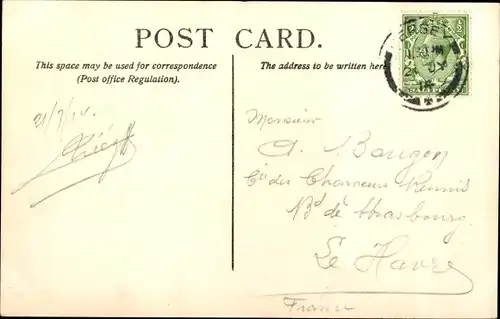 POST CARD.
This space may be used for correspondence
(Post office Regulation).
The address to be written here
JERSEY
21/7/14.
Monsieur
A. Baugen
Cie des Chargeurs Réunis
Bd de Strasbourg
Le Havre
France